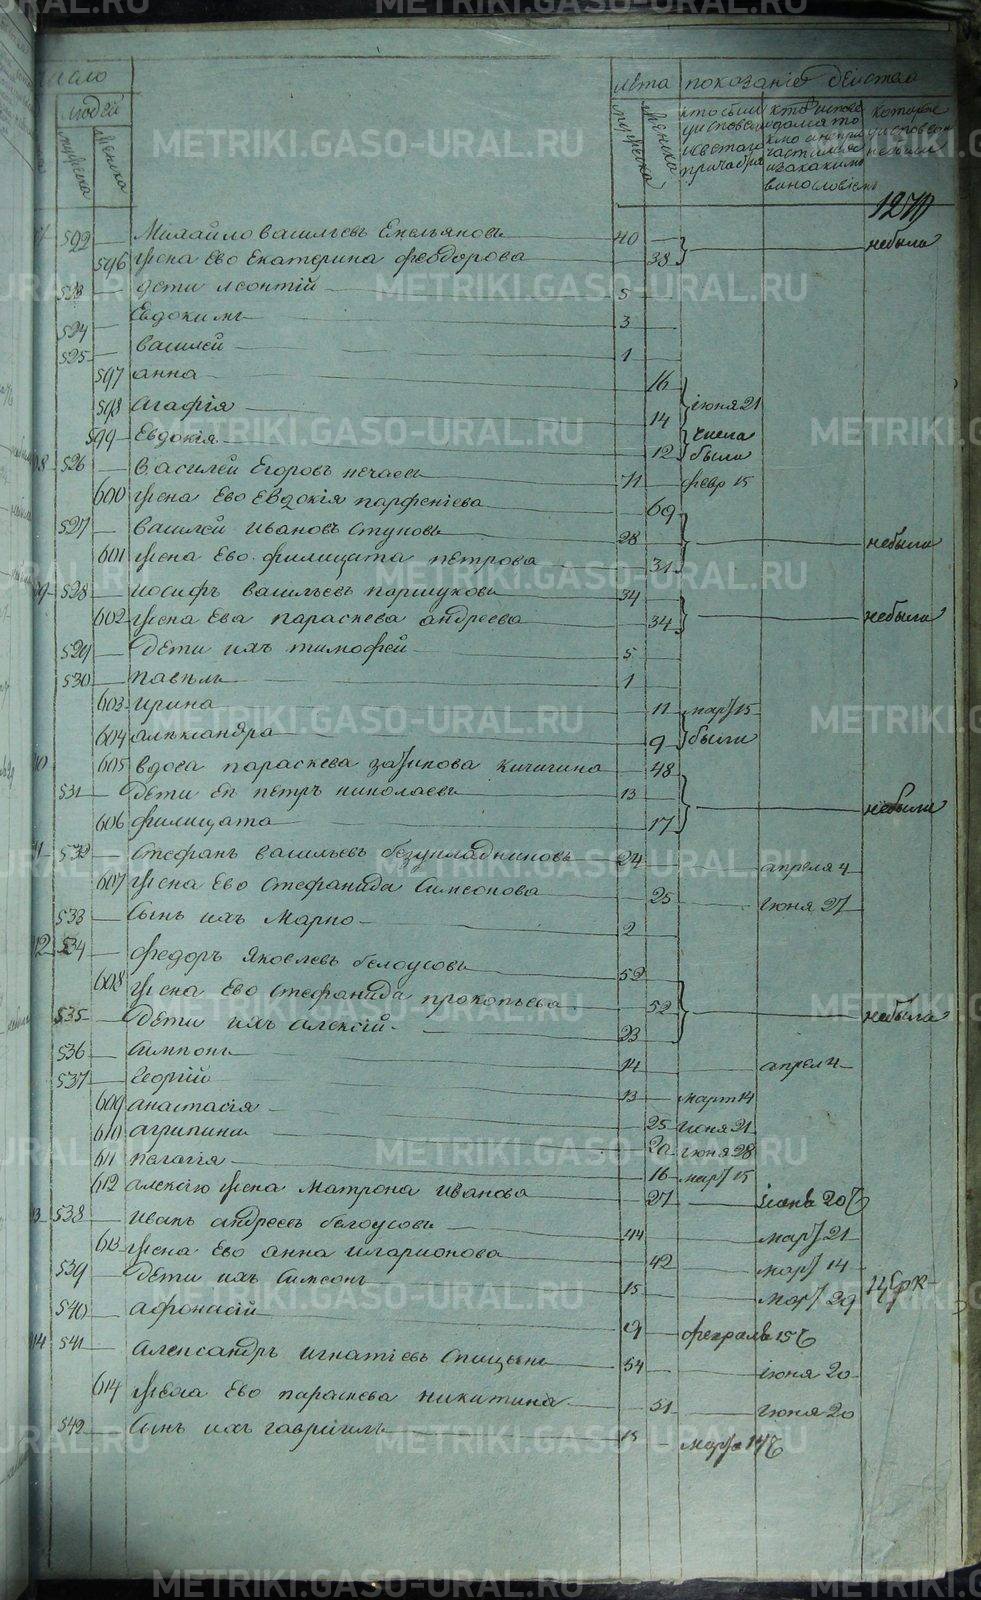 число
людей
мужеска
женска
лета
мужеска
женска
показание действа
кто были
у исповеди
и святаго
причастия
кто испове
дался то
кмо а не при
частился
и за каким
винословием
которые
у исповеди
небыли
1270
592 — Михайло васильевъ Емельяновъ 40 небыли
596 жена Ево Екатерина феодорова 38
523 — дети леонтий 5
524 Евдокимъ 3
525 — василей 1
597 анна 16
598 агафия 14 июня 21
599 Евдокия 12 числа были
526 — Василей Егоровъ нечаевъ 71 февр 15
600 жена Ево Евдокия парфениева 69
527 — василей ивановъ Ступовъ 28 небыли
601 жена Ево филицата петрова 31
528 — иосифъ васильевъ паршуковъ 34
602 жена Ево параскева андреева 34 небыли
529 — дети ихъ тимофей 5
530 — павелъ 1
603 ирина 11 март 15
604 александра 9 были
605 вдова параскева кичигина 48
531 — дети еп петръ николаевъ 13
606 филицата 17 небыли
532 — Стефанъ васильевъ безукладниковъ 24 апреля 4
607 жена Ево Стефанида Симеонова 25 июня 27
533 — Сынъ ихъ Марко 2
534 — федоръ Яковлевъ белоусовъ 52
608 жена Ево Стефанида прокопьева 52
535 — Дети ихъ алексий 23 небыли
536 — Симионъ 14 апрел 4
537 — Георгий 13 март 14
609 анастасия 25 июня 21
610 агрипина 20 июня 28
611 пелагия 16 март 15
612 алексию жена матрона иванова 27 20
538 — иванъ андреевъ белоусовъ 44 март 21
613 жена Ево анна иларионова 42 март 14
539 — Дети ихъ Симеонъ 15 март 29
540 — афонасий 9 февраля 15
541 — александръ игнатиевъ Спицынъ 54 июня 20
614 жена Ево параскева никитина 51 июня 20
542 — Сынъ ихъ гавриилъ 15 марта 14
METRIKI.GASO-URAL.RU